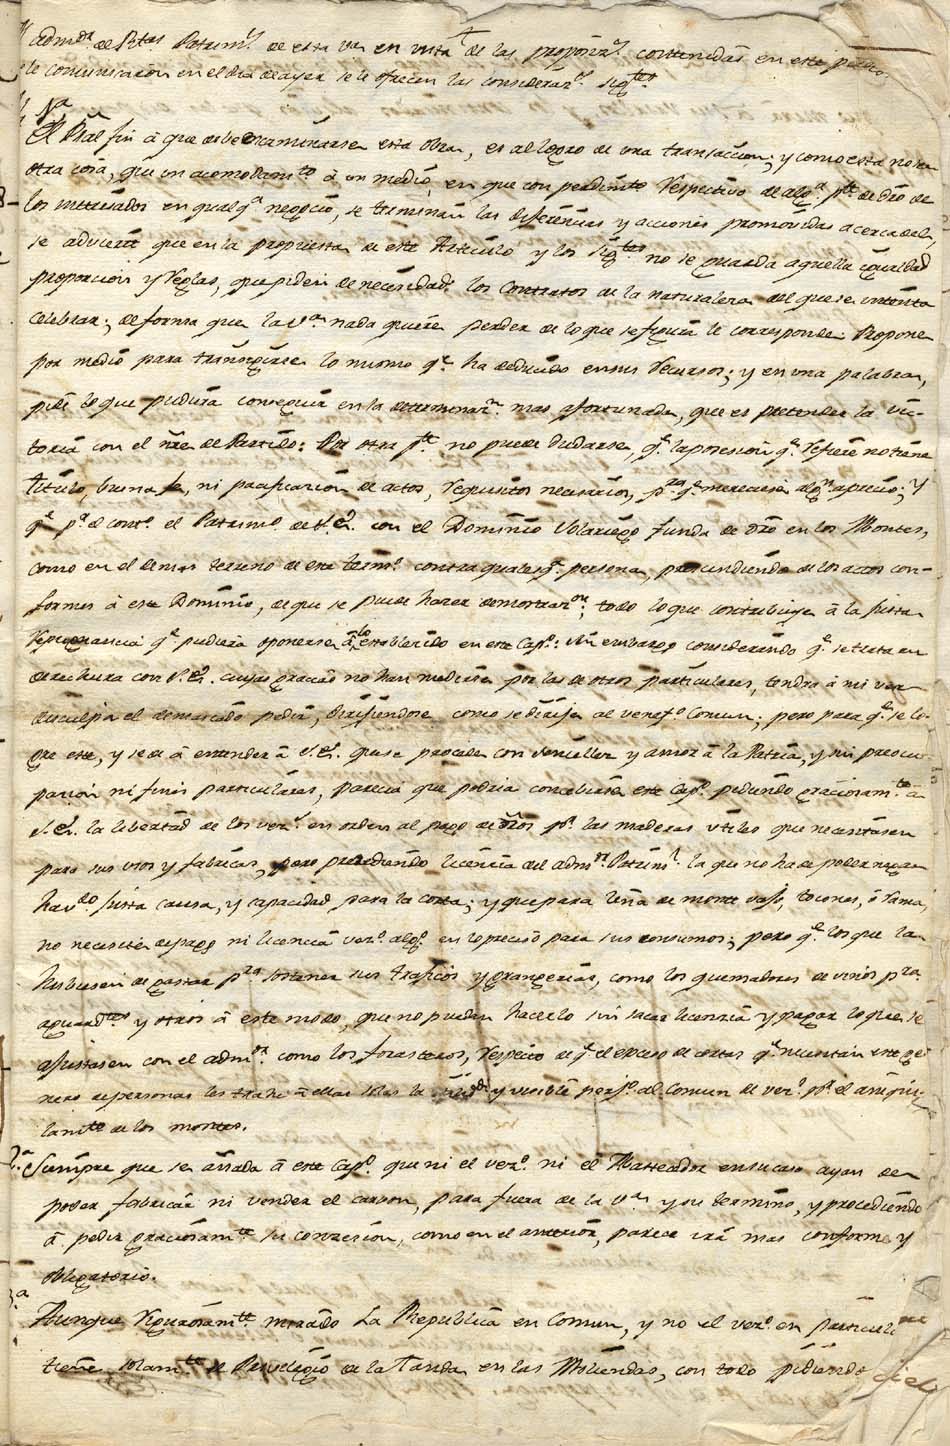 Adm.or de R.tas Patrim.s de esta V.a en vista de las proposiz.s contenidas en este papel
se le comunicaron en el dia de ayer se le ofrecen las considerac.s sig.tes
1.a
El Pral fin à que debe encaminarse esta obra, es al logro de una transaccion; y como esta no sea
otra cosa, que un acomodam.to à un medio, en que con perdimto respectivo de alg.a p.te de dro de
los interesados en qualq.a negocio, se terminan las diferencias y acciones promovidas acerca del,
se advierte que en la propuesta de este Articulo y los sig.tes no se guarda aquella igualdad
proporcion y reglas, que piden de necesidad los contratos de la naturaleza del que se intenta
celebrar; de forma que la V.a nada quiere perder de lo que se figura le corresponde: Propone
por medio para transigirse lo mismo q.e ha deducido en sus recursos; y en una palabra,
pide lo que pudiera conseguir en la determinaz.n mas afortunada, que es pretender la vic-
toria con el nre de Partido: Por otra p.te no puede dudarse, q.e la posesion q.e refiere no tiene
titulo, buena fe, ni pacificacion de actos, requisitos necesarios, p.ra q.e mereciese algun aprecio; y
q.e p.r el cont.o el Patrim.o de S.E. con el Dominio Solariego funda de dro en los Montes,
como en el demas terreno de este term.o contra qualesq.a persona, prescindiendo de los actos con-
formes à este Dominio, de que se puede hacer demostraz.on; todo lo que contribuye à la justa
repugnancia q.e pudiera oponerse à lo establecido en este Cap.o: sin embargo considerando q.e se trata en
derechura con S.E. cuyas gracias no han medirse por las de otros particulares, tendra à mi ver
disculpa el demasiado pedir, dirigiendose como se dirije al venef.o comun; pero para q.e se lo-
gre este, y se dè à entender à S.E. que se procede con sencillez y amor à la Patria, y sin preocu-
pacion ni fines particulares, parecia que podria concebirse este Cap.o pidiendo graciosam.te à
S.E. la libertad de los vez.s en orden al pago de dros p.r las maderas utiles que necesitasen
para sus usos y fabricas, pero precediendo licencia del adm.or Patrim.l la que no ha de poder negar
hav.do justa causa, y capacidad para la corta; y que para leña de monte vajo, tocones, ò rama,
no necesite de pago ni licencia vez.o alg.o en lo preciso para sus consumos; pero q.e los que la
hubiesen de gastar p.ra sostener sus traficos y grangerias, como los quemadores de vinos p.ra
aguard.tes y otros à este modo, que no puedan hacerlo sin sacar licencia y pagar lo que se
ajustasen con el adm.or como los forasteros, respecto de q.e el exceso de cortas q.e necesitan este ge-
nero de personas les trahe à ellas solas la utilidd y visible perj.o al comun de vez.s p.r el aniqui-
lam.to de los montes.
2.a Siempre que se añada à este Cap.o que ni el vez.o ni el Matteador en su caso ayan de
poder fabricar ni vender el carbon, para fuera de la V.a y su termino, y procediendo
à pedir graciosam.te su concesion, como en el anterior, parece irà mas conforme y
obligatorio.
3.a
Aunque rigurosam.te mirado La Republica en comun, y no el vez.o en particular
tiene solam.te el Privilegio de la Tanda en las Moliendas, con todo pidiendo